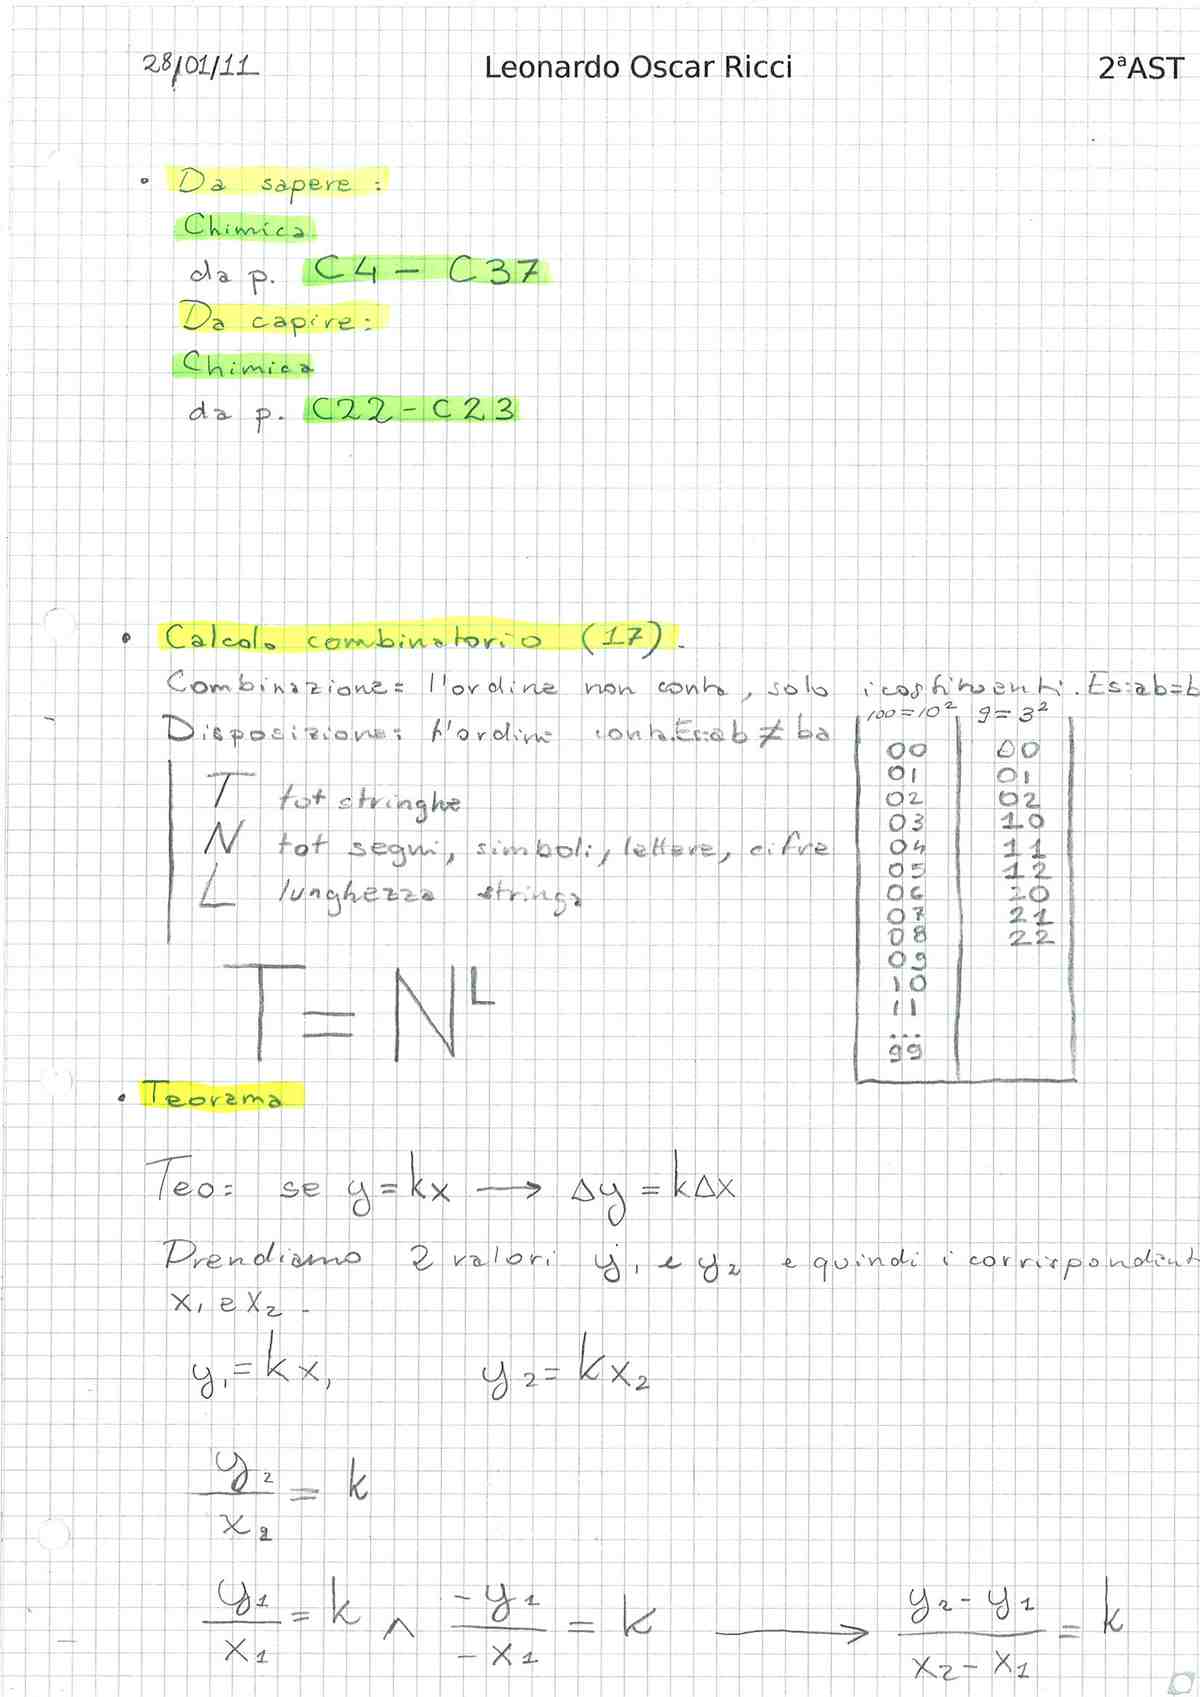 28/01/11 Leonardo Oscar Ricci 2ªAST
• Da sapere:
Chimica
da p. C4 - C37
Da capire:
Chimica
da p. C22 - C23
• Calcolo combinatorio (17).
Combinazione= l'ordine non conta, solo i costituenti. Es:ab=b
Disposizione: l'ordine conta.Es:ab ≠ ba
T tot stringhe
N tot segni, simboli, lettere, cifre
L lunghezza stringa
T = N^L
100=10² 9=3²
00 00
01 01
02 02
03 10
04 11
05 12
06 20
07 21
08 22
09
10
11
...
99
• Teorema
Teo= se y=kx → Δy=kΔx
Prendiamo 2 valori y₁ e y₂ e quindi i corrispondent
x₁ e x₂ -
y₁=kx₁ y₂=kx₂
y₂/x₂ = k
y₁/x₁ = k ∧ -y₁/-x₁ = k → y₂-y₁/x₂-x₁ = k